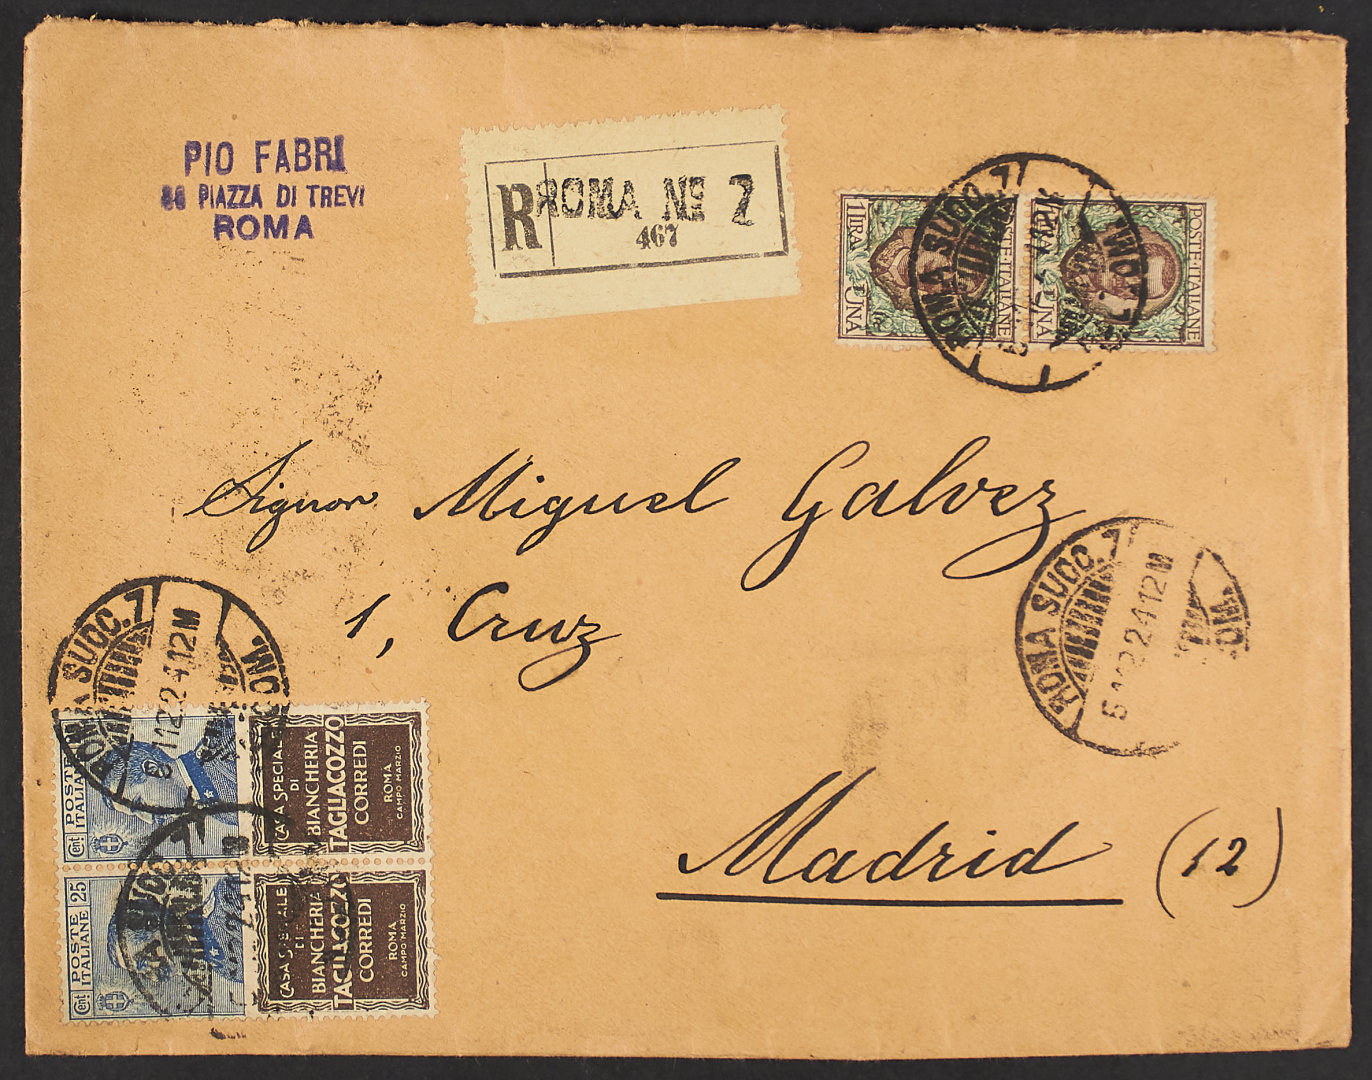 PIO FABRI
PIAZZA DI TREVI
ROMA
R ROMA Nº 2
467
1 LIRA UNA
POSTE ITALIANE
UNA
POSTE·ITALIANE
ROMA SUCC. 7
Signor Miguel Galvez
1, Cruz
Madrid (12)
ROMA SUCC. 7
12 M
ROMA SUCC. 7
12 M
Cent
POSTE
ITALIANE
CASA SPECIALE
DI
BIANCHERIA
TAGLIACOZZO
CORREDI
ROMA
CAMPO MARZIO
Cent 25
POSTE
ITALIANE
CASA SPECIALE
DI
BIANCHERIA
TAGLIACOZZO
CORREDI
ROMA
CAMPO MARZIO